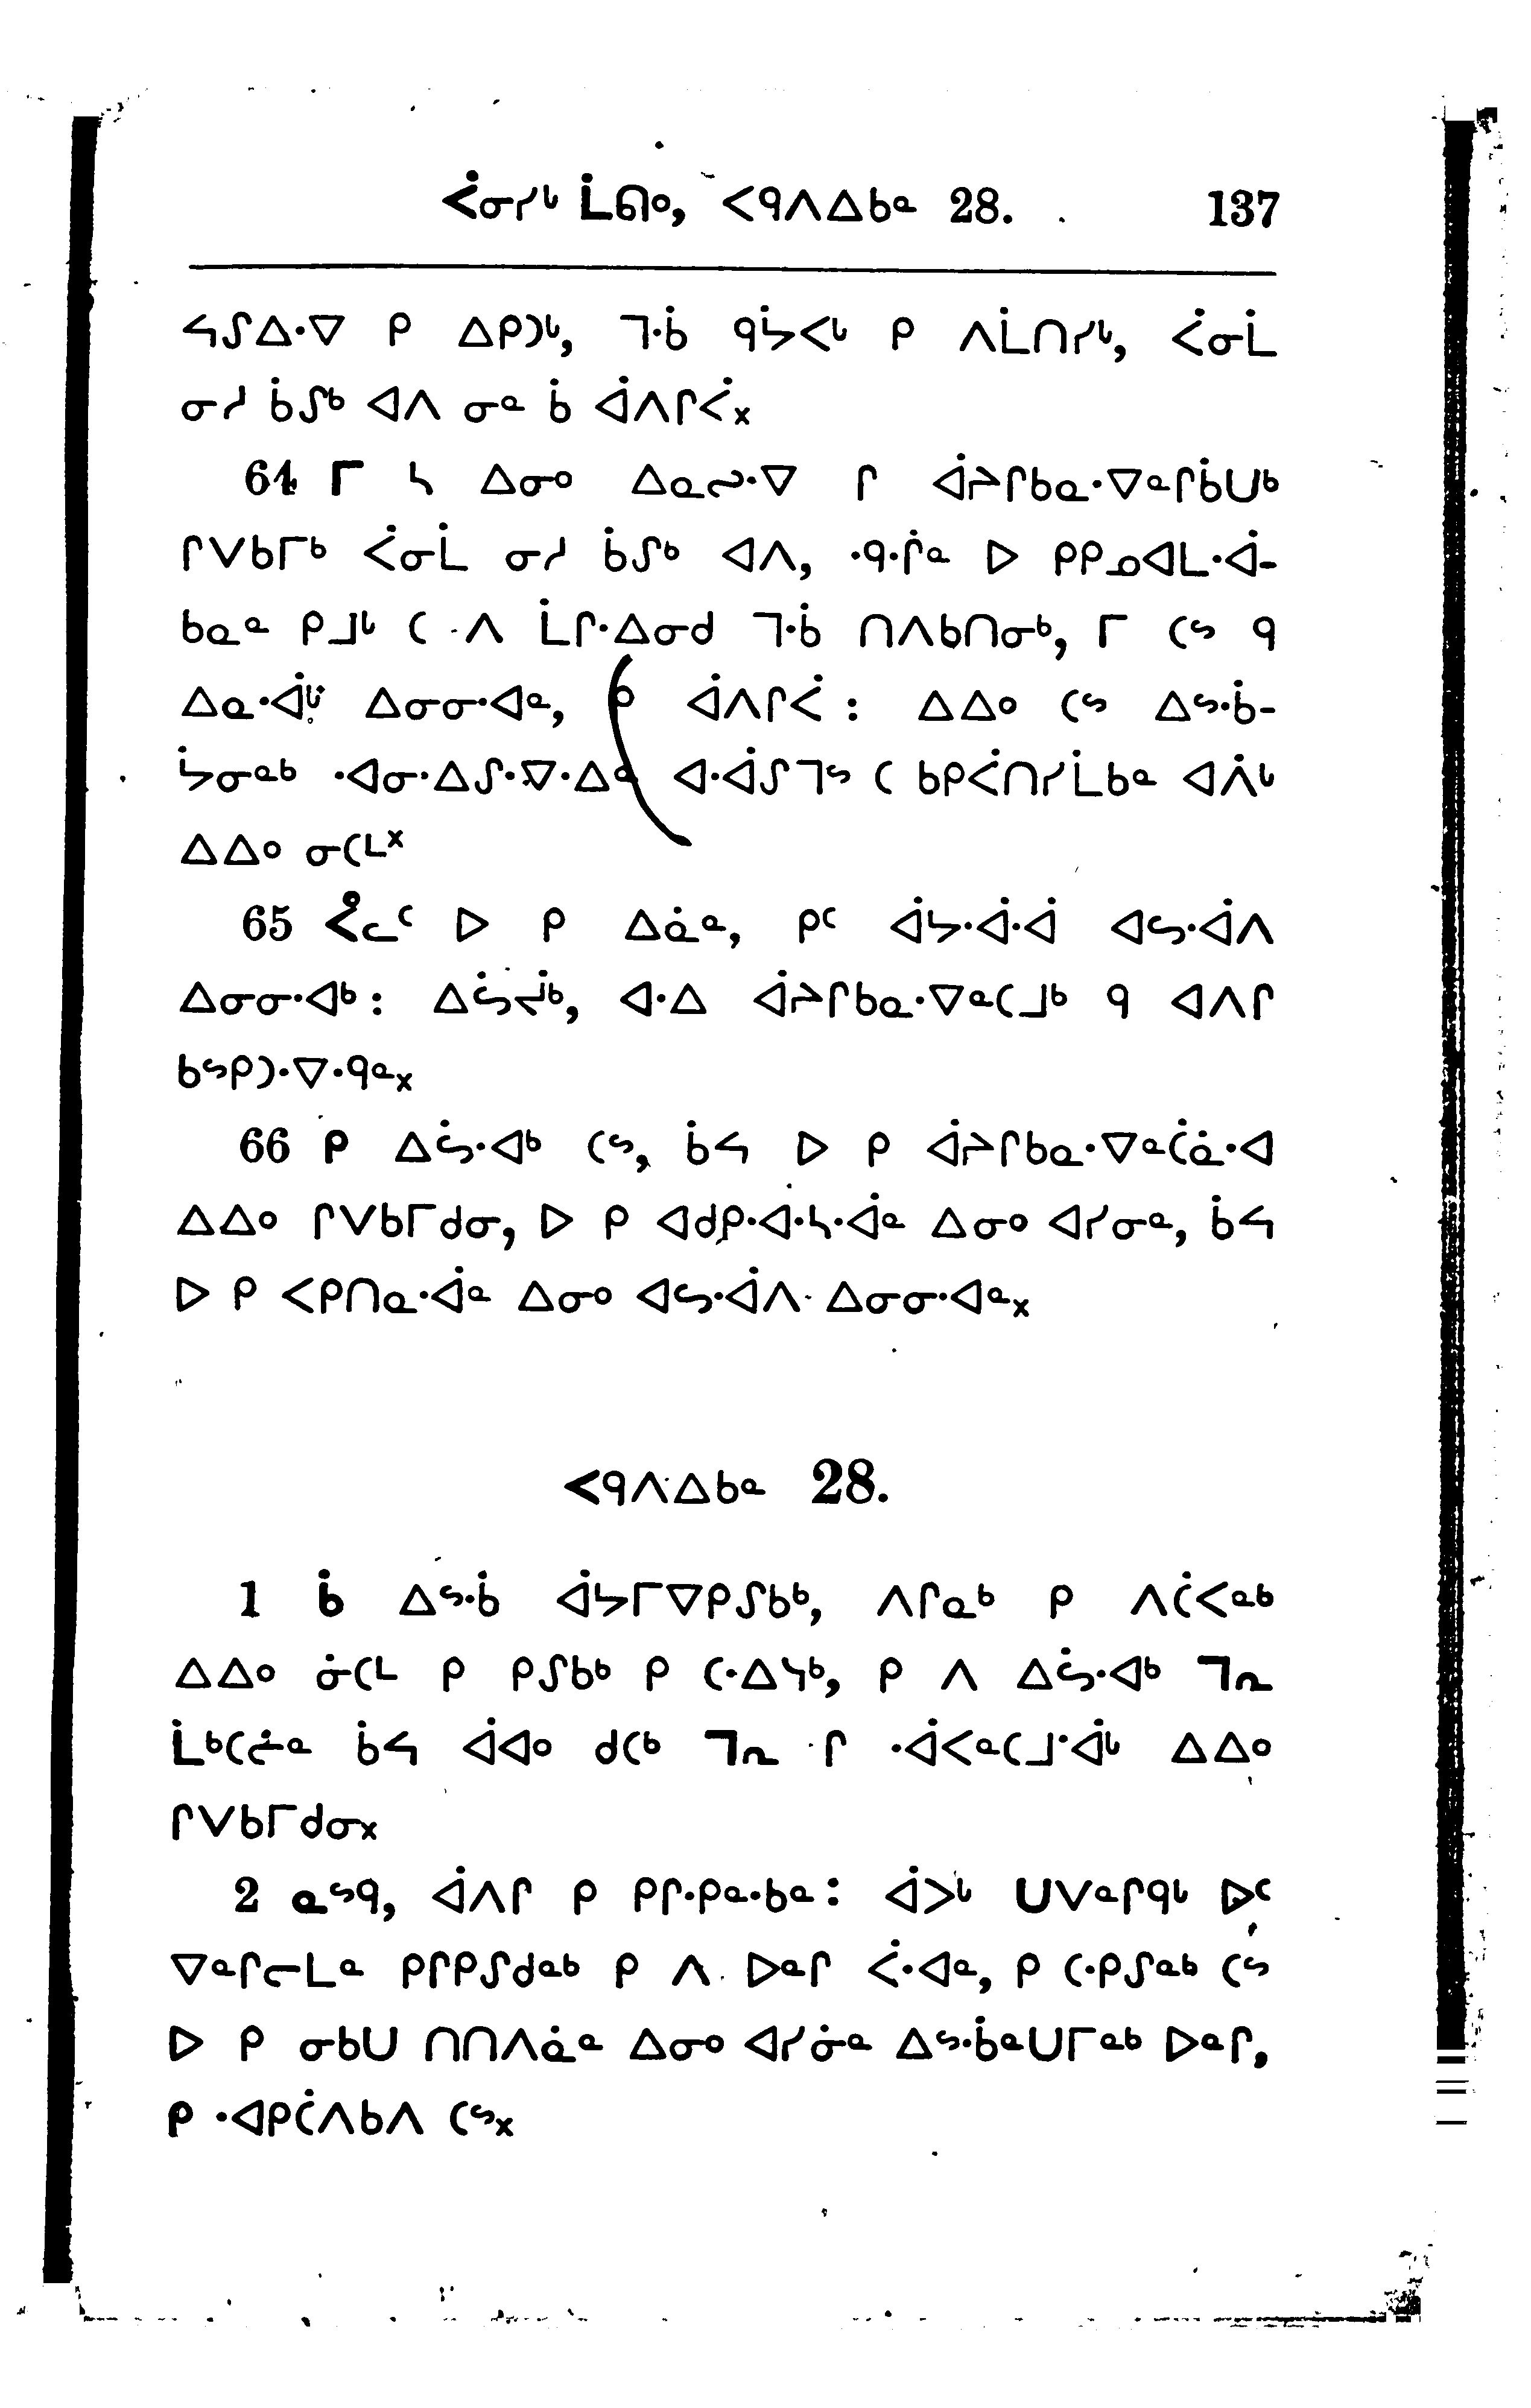 ᐹᓂᓯᒡ ᒫᘏᐤ, ᐸᑫᐱᐃᑲᓐ 28. 137
ᓴᔑᐃᐧᐁ ᑭ ᐃᑭᑐᒡ, ᒣᐧᑳ ᑫᔮᐸᒡ ᑭ ᐱᒫᑎᓯᒡ, ᐹᓂᒫ
ᓂᓱ ᑳᔑᒃ ᐊᐱ ᓂᓐ ᑳ ᐋᐱᒋᐹ᙮
64 ᒥ ᓭ ᐃᓂᐤ ᐃᓇᔓᐧᐁ ᒋ ᐋᔨᒋᑲᓇᐧᐁᓐᒋᑳᑌᒃ
ᒋᐯᑲᒥᒃ ᐹᓂᒫ ᓂᓱ ᑳᔑᒃ ᐊᐱ, ᐧᑫᐧᒌᓐ ᐅ ᑭᑭᓄᐊᒪᐧᐋ-
ᑲᓇᓐ ᑭᒧᒡ ᑕ ᐱ ᒫᒋᐧᐃᓂᑯ ᒣᐧᑳ ᑎᐱᑲᑎᓂᒃ, ᒥ ᑕᔥ ᑫ
ᐃᓇᐧᐋᒡ ᐃᓂᓂᐧᐊᓐ, ᑭ ᐋᐱᒋᐹ : ᐃᐃᐤ ᑕᔥ ᐃᔥᐧᑳ-
ᔮᓂᓐᒃ ᐧᐊᓂᐧᐃᔑᐧᐁᐧᐃᓐ ᐊᐧᐋᔑᒣᔥ ᑕ ᑲᑭᐹᑎᓯᒫᑲᓐ ᐊᐲᒡ
ᐃᐃᐤ ᓂᑕᒻ᙮
65 ᐹᓚᑦ ᐅ ᑭ ᐃᓈᓐ, ᑭᑦ ᐋᔭᐧᐋᐧᐋ ᐊᔕᐧᐋᐱ
ᐃᓂᓂᐧᐊᒃ : ᐃᔖᔪᒃ, ᐊᐧᐃ ᐋᔨᒋᑲᓇᐧᐁᓐᑕᒧᒃ ᑫ ᐊᐱᒋ
ᑲᔥᑭᑐᐧᐁᐧᑫᓐ᙮
66 ᑭ ᐃᔖᐧᐊᒃ ᑕᔥ, ᑳᓴ ᐅ ᑭ ᐋᔨᒋᑲᓇᐧᐁᓐᑖᓈᐧᐊ
ᐃᐃᐤ ᒋᐯᑲᒥᑯᓂ, ᐅ ᑭ ᐊᑯᑭᐧᐊᐧᓭᐧᐋᓐ ᐃᓂᐤ ᐊᓯᓂᓐ, ᑳᓴ
ᐅ ᑭ ᐸᑭᑎᓇᐧᐋᓐ ᐃᓂᐤ ᐊᔕᐧᐋᐱ ᐃᓂᓂᐧᐊᓐ᙮
ᐸᑫᐱᐃᑲᓐ 28.
1 ᑳ ᐃᔥᐧᑳ ᐋᔭᒥᐁᑭᔑᑲᒃ, ᐱᒋᓇᒃ ᑭ ᐱᑖᐸᓐᒃ
ᐃᐃᐤ ᓃᑕᒻ ᑭ ᑭᔑᑲᒃ ᑭ ᑕᐧᐃᓭᒃ, ᑭ ᐱ ᐃᔖᐧᐊᒃ ᒣᕆ
ᒫᒃᑕᓖᓐ ᑳᓴ ᐋᐊᐤ ᑯᑕᒃ ᒣᕆ ᒋ ᐧᐋᐸᓐᑕᒧᐧᐋᒡ ᐃᐃᐤ
ᒋᐯᑲᒥᑯᓂ᙮
2 ᓇᔥᑫ, ᐋᐱᒋ ᑭ ᑭᒋᐧᑭᓐᐧᑲᓐ : ᐋᐳᒡ ᑌᐯᓐᒋᑫᒡ ᐅᑦ
ᐁᓐᒋᓕᒪᓐ ᑭᒋᑭᔑᑯᓐᒃ ᑭ ᐱ ᐅᓐᒋ ᐹᐧᐊᓐ, ᑭ ᑕᐧᑭᔑᓐᒃ ᑕᔥ
ᐅ ᑭ ᓂᑲᑌ ᑎᑎᐱᓈᓐ ᐃᓂᐤ ᐊᓯᓃᓐ ᐃᔥᐧᑳᓐᑌᒥᓐᒃ ᐅᓐᒋ,
ᑭ ᐧᐊᑭᑖᐱᑲᐱ ᑕᔥ᙮